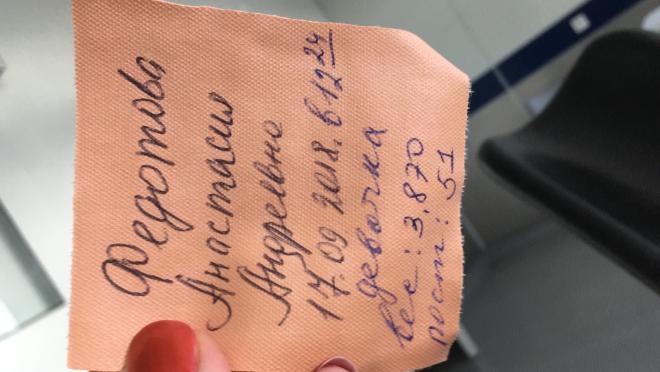 Федотова
Анастасия
Андреевна
17.09 2018. в 12 24
девочка
вес: 3,870
рост: 51